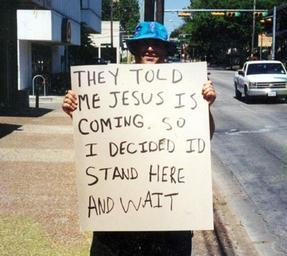 THEY TOLD
ME JESUS IS
COMING. SO
I DECIDED ID
STAND HERE
AND WAIT